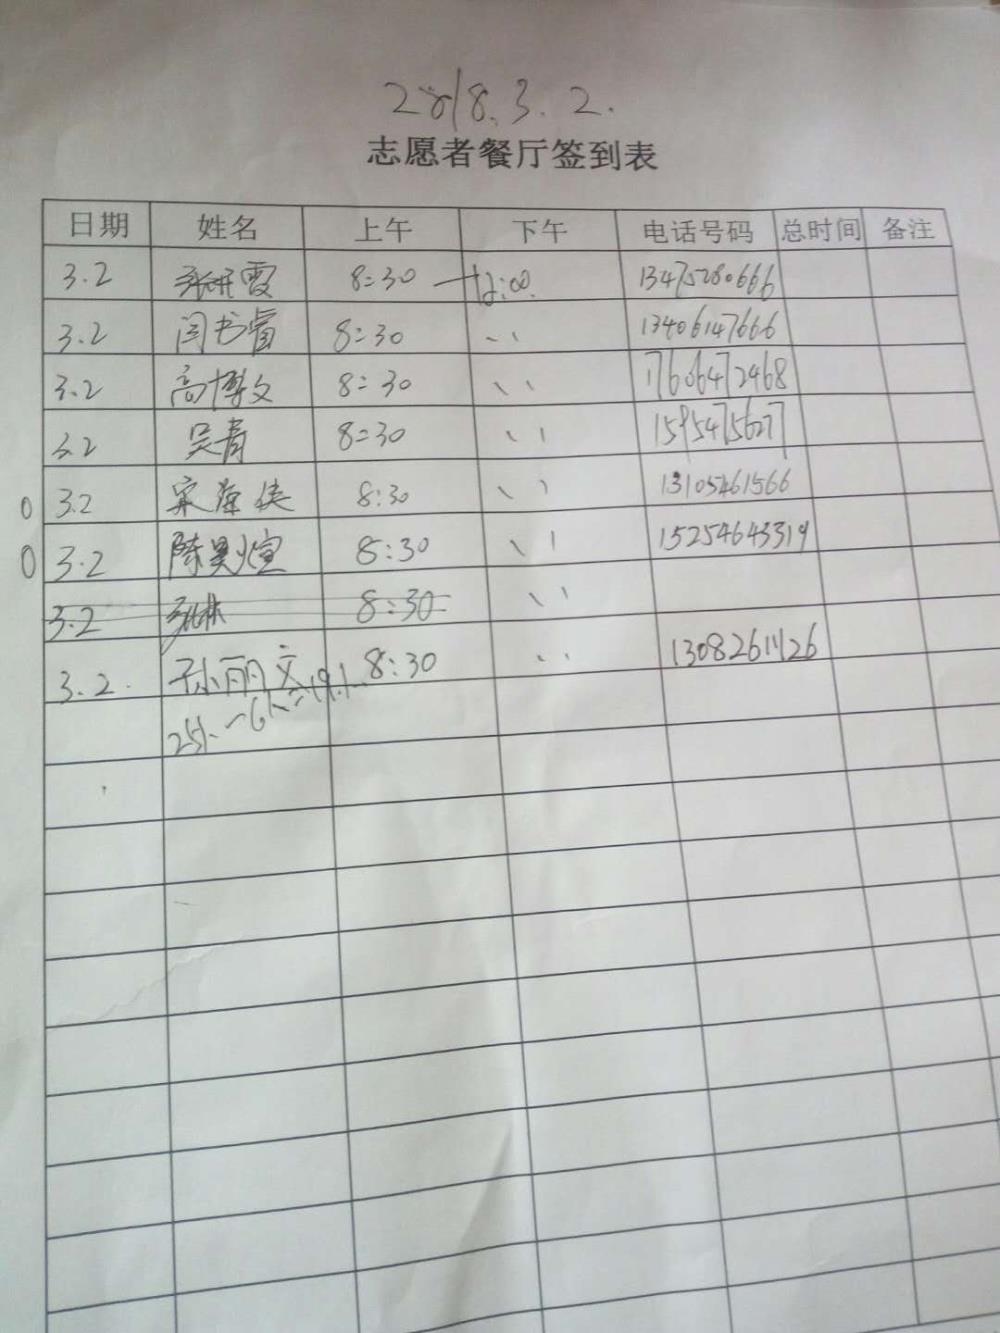 2018.3.2.
志愿者餐厅签到表
日期 姓名 上午 下午 电话号码 总时间 备注
3.2 张研霞 8:30 — 12:00. 13475280666
3.2 闫书睿 8:30 、、 13406147666
3.2 高博文 8:30 、、 17606472468
3.2 吴青 8:30 、、 15954715627
0 3.2 宋海侠 8:30 、、 13105461566
0 3.2 陈昊煊 8:30 、、 15254643319
3.2 8:30 、、
3.2. 孙丽文 8:30 、、 13082611126